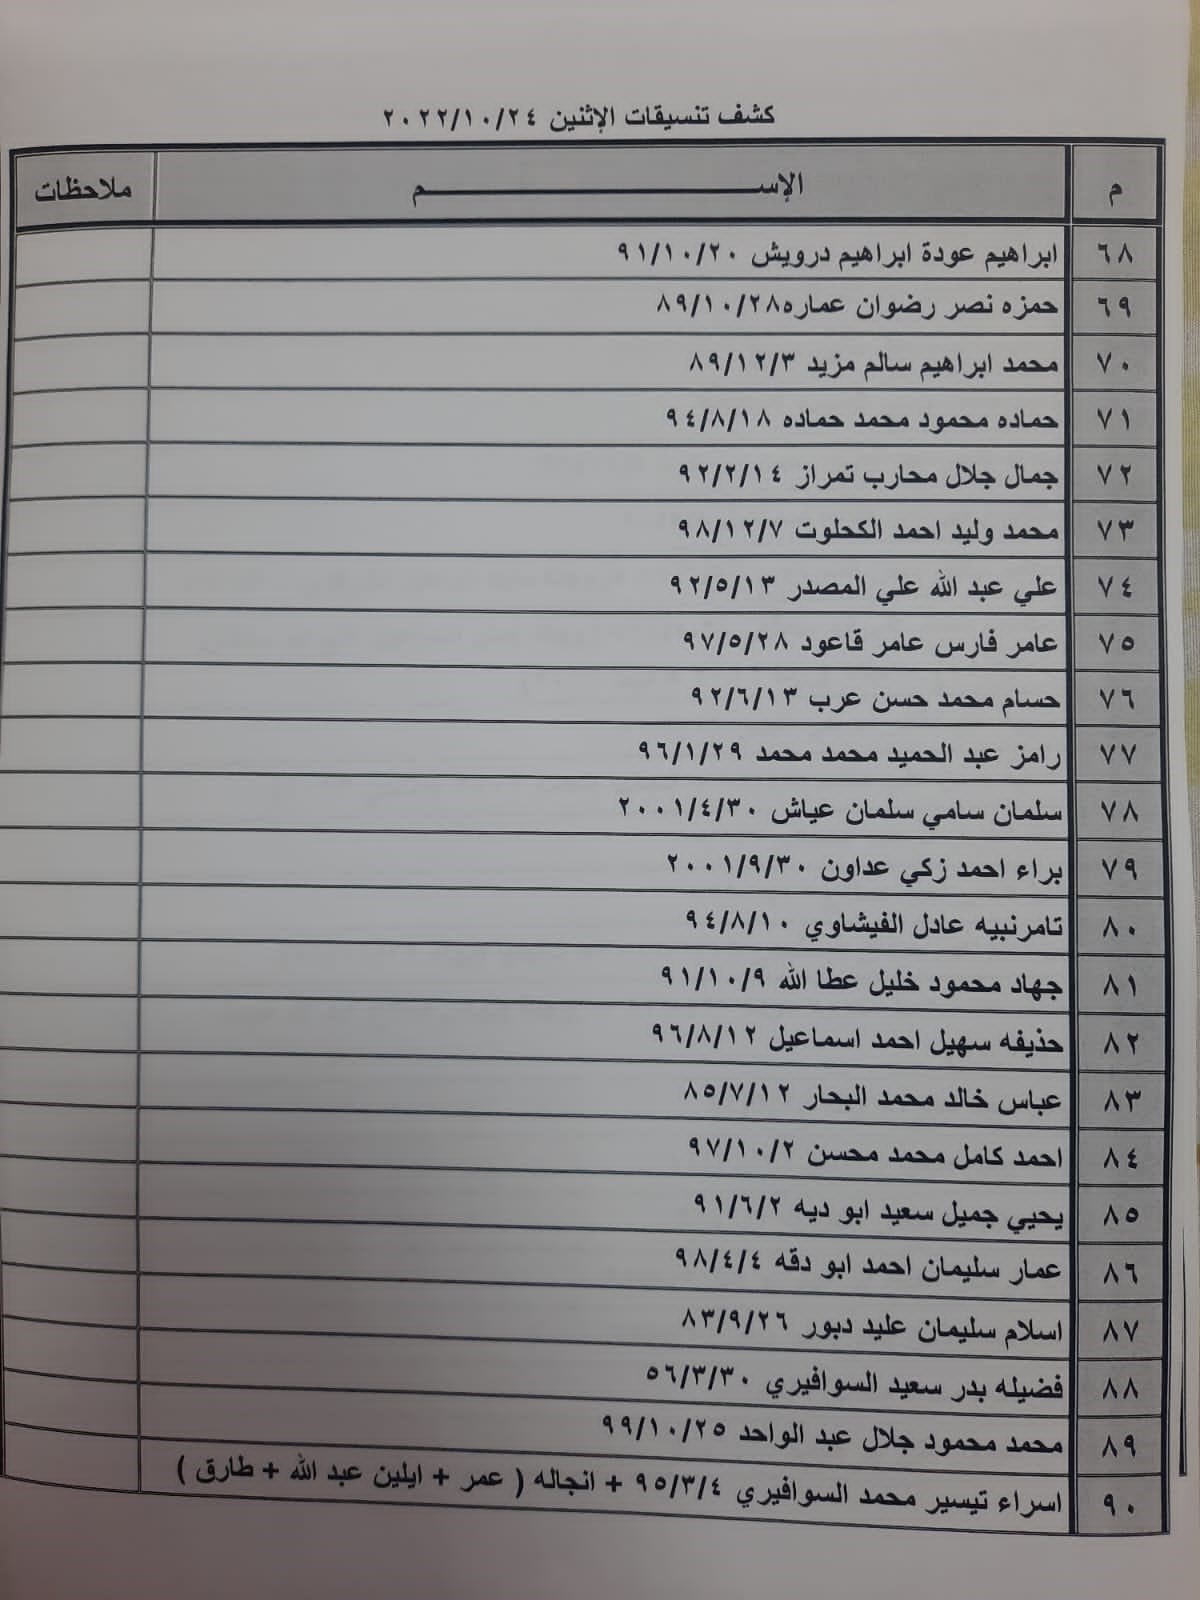 كشف تنسيقات الإثنين ٢٠٢٢/١٠/٢٤
م الإســـــــــــــــــــــــم ملاحظات
٦٨ ابراهيم عودة ابراهيم درويش ٩١/١٠/٢٠
٦٩ حمزه نصر رضوان عماره٨٩/١٠/٢٨
٧٠ محمد ابراهيم سالم مزيد ٨٩/١٢/٣
٧١ حماده محمود محمد حماده ٩٤/٨/١٨
٧٢ جمال جلال محارب تمراز ٩٢/٢/١٤
٧٣ محمد وليد احمد الكحلوت ٩٨/١٢/٧
٧٤ علي عبد الله علي المصدر ٩٢/٥/١٣
٧٥ عامر فارس عامر قاعود ٩٧/٥/٢٨
٧٦ حسام محمد حسن عرب ٩٢/٦/١٣
٧٧ رامز عبد الحميد محمد محمد ٩٦/١/٢٩
٧٨ سلمان سامي سلمان عياش ٢٠٠١/٤/٣٠
٧٩ براء احمد زكي عداون ٢٠٠١/٩/٣٠
٨٠ تامرنبيه عادل الفيشاوي ٩٤/٨/١٠
٨١ جهاد محمود خليل عطا الله ٩١/١٠/٩
٨٢ حذيفه سهيل احمد اسماعيل ٩٦/٨/١٢
٨٣ عباس خالد محمد البحار ٨٥/٧/١٢
٨٤ احمد كامل محمد محسن ٩٧/١٠/٢
٨٥ يحيي جميل سعيد ابو ديه ٩١/٦/٢
٨٦ عمار سليمان احمد ابو دقه ٩٨/٤/٤
٨٧ اسلام سليمان عليد دبور ٨٣/٩/٢٦
٨٨ فضيله بدر سعيد السوافيري ٥٦/٣/٣٠
٨٩ محمد محمود جلال عبد الواحد ٩٩/١٠/٢٥
٩٠ اسراء تيسير محمد السوافيري ٩٥/٣/٤ + انجاله ( عمر + ايلين عبد الله + طارق )